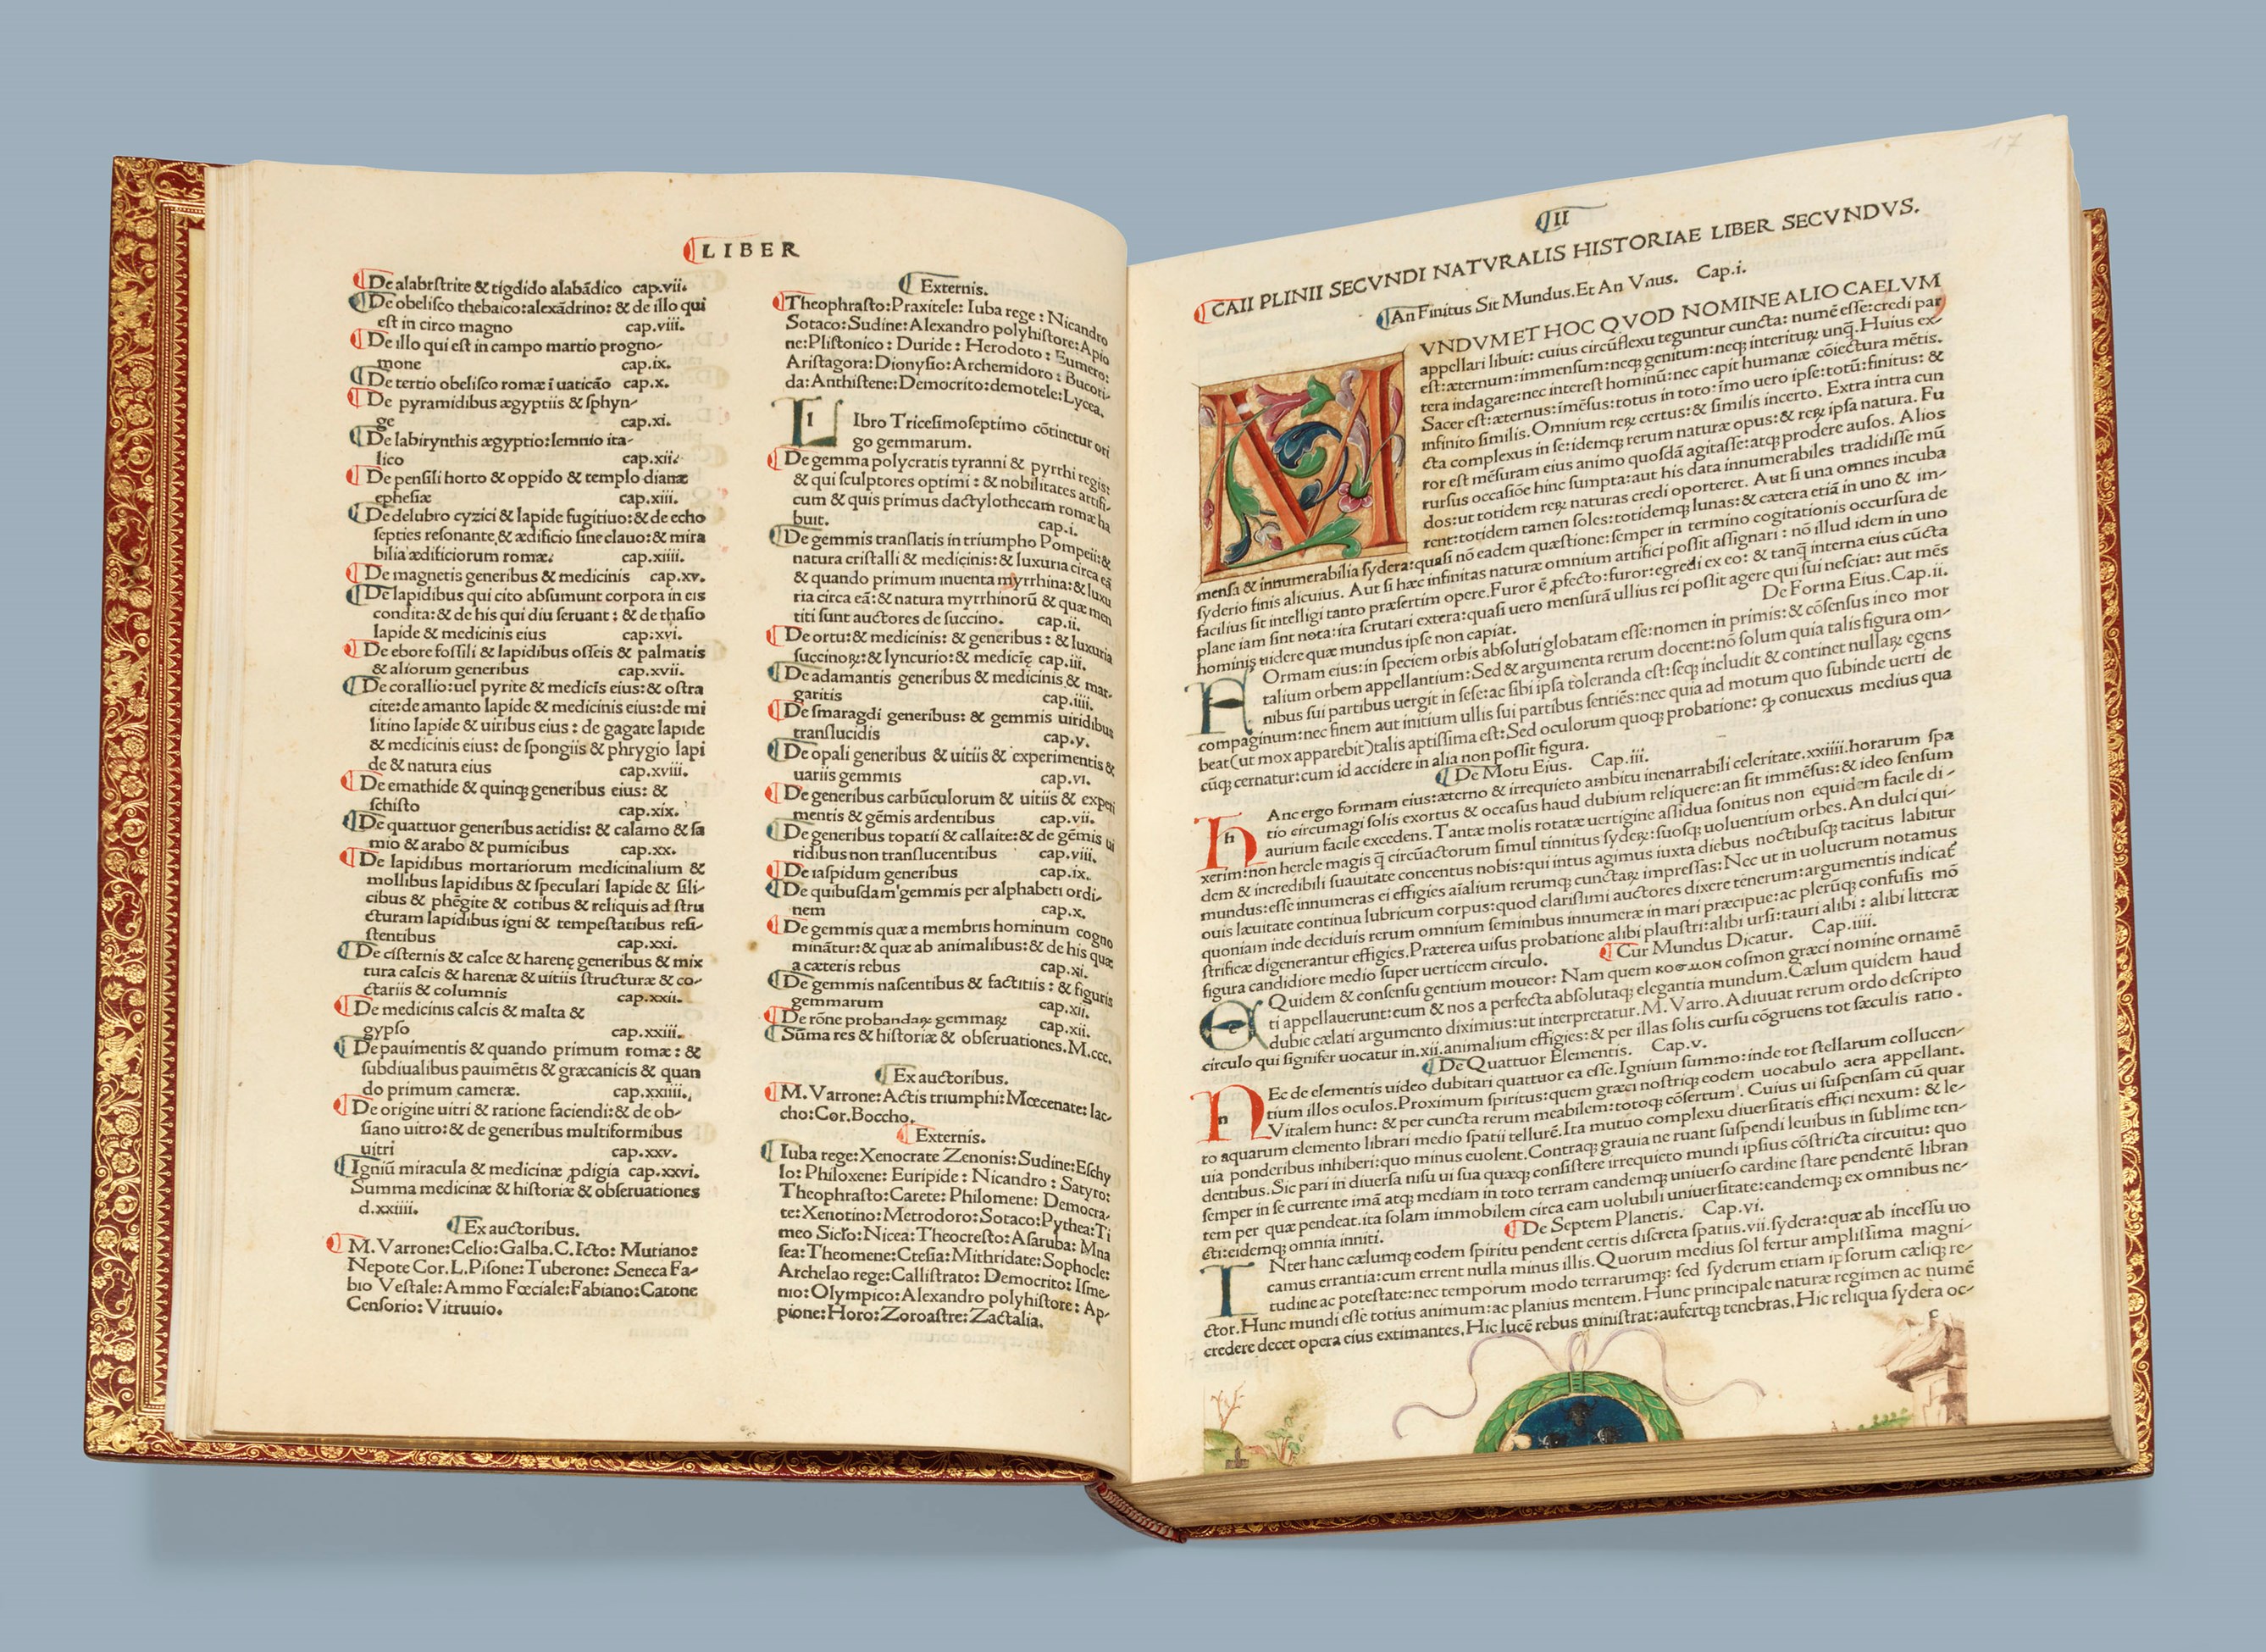 LIBER
De alabrstrite & tigdido alabãdico cap.vii.
De obelisco thebaico:alexãdrino: & de illo qui
est in circo magno cap.viii.
De illo qui est in campo martio progno-
mone cap.ix.
De tertio obelisco romæ ĩ uaticão cap.x.
De pyramidibus ægyptiis & sphyn-
ge cap.xi.
De labirynthis ægyptio:lemnio ita-
lico cap.xii.
De pensili horto & oppido & templo dianæ
ephesiæ cap.xiii.
De delubro cyzici & lapide fugitiuo:& de echo
septies resonante & ædificio sine clauo:& mira
bilia ædificiorum romæ. cap.xiiii.
De magnetis generibus & medicinis cap.xv.
De lapidibus qui cito absumunt corpora in eis
condita:& de his qui diu seruant : & de thasio
lapide & medicinis eius cap.xvi.
De ebore fossili & lapidibus osseis & palmatis
& aliorum generibus cap.xvii.
De corallio:uel pyrite & medicĩs eius:& ostra
cite:de amanto lapide & medicinis eius:de mi
litino lapide & uiribus eius : de gagate lapide
& medicinis eius: de spongiis & phrygio lapi
de & natura eius cap.xviii.
De emathide & quinqȝ generibus eius: &
schisto cap.xix.
De quattuor generibus aetidis: & calamo & sa
mio & arabo & pumicibus cap.xx.
De lapidibus mortariorum medicinalium &
mollibus lapidibus & speculari lapide & sili-
cibus & phẽgite & cotibus & reliquis ad stru
cturam lapidibus igni & tempestatibus resi-
stentibus cap.xxi.
De cisternis & calce & harenę generibus & mix
tura calcis & harenæ & uitiis structuræ & co-
ctariis & columnis cap.xxii.
De medicinis calcis & malta &
gypso cap.xxiii.
De pauimentis & quando primum romæ : &
subdiualibus pauimẽtis & græcanicis & quan
do primum cameræ. cap.xxiiii.
De origine uitri & ratione faciendi:& de ob-
siano uitro:& de generibus multiformibus
uitri cap.xxv.
Igniũ miracula & medicinæ ꝓdigia cap.xxvi.
Summa medicinæ & historiæ & obseruationes
d.xxiiii.
Ex auctoribus.
M.Varrone:Celio:Galba.C.Icto: Mutiano:
Nepote Cor.L.Pisone:Tuberone: Seneca Fa-
bio Vestale:Ammo Fœciale:Fabiano:Catone
Censorio:Vitruuio.
Externis.
Theophrasto:Praxitele: Iuba rege : Nicandro
Sotaco:Sudine:Alexandro polyhistore:Apio
ne:Plistonico : Duride : Herodoto : Eumero:
Aristagora:Dionysio:Archemidoro : Bucori-
da:Anthistene:Democrito:demotele:Lycea.
l
Ibro Tricesimoseptimo cõtinetur ori
go gemmarum.
De gemma polycratis tyranni & pyrrhi regis:
& qui sculptores optimi : & nobilitates artifi-
cum & quis primus dactylothecam romæ ha
buit. cap.i.
De gemmis translatis in triumpho Pompeii:&
natura cristalli & medicinis:& luxuria circa eã
& quando primum inuenta myrrhina:& luxu
ria circa eã:& natura myrrhinorũ & quæ men
titi sunt auctores de succino. cap.ii.
De ortu:& medicinis: & generibus : & luxuria
succinoꝝ:& lyncurio:& medicĩę cap.iii.
De adamantis generibus & medicinis & mar-
garitis cap.iiii.
De smaragdi generibus: & gemmis uiridibus
translucidis cap.v.
De opali generibus & uitiis & experimentis &
uariis gemmis cap.vi.
De generibus carbũculorum & uitiis & experi
mentis & gẽmis ardentibus cap.vii.
De generibus topatii & callaite:& de gẽmis ui
ridibus non translucentibus cap.viii.
De iaspidum generibus cap.ix.
De quibusdam gemmis per alphabeti ordi-
nem cap.x.
De gemmis quæ a membris hominum cogno
minãtur:& quæ ab animalibus:& de his quæ
a cæteris rebus cap.xi.
De gemmis nascentibus & factitiis : & figuris
gemmarum cap.xii.
De rõne probandaꝝ gemmaꝝ cap.xii.
Sũma res & historiæ & obseruationes.M.ccc.
Ex auctoribus.
M.Varrone:Actis triumphi:Mœcenate: Iac-
cho:Cor.Boccho.
Externis.
Iuba rege:Xenocrate Zenonis:Sudine:Eschy
lo: Philoxene: Euripide : Nicandro : Satyro:
Theophrasto:Carete: Philomene: Democra-
te:Xenotino:Metrodoro:Sotaco:Pythea:Ti
meo Siclo:Nicea:Theocresto:Asaruba: Mna
sea:Theomene:Ctesia:Mithridate:Sophocle:
Archelao rege:Callistrato: Democrito: Isme-
nio:Olympico:Alexandro polyhistore : Ap-
pione:Horo:Zoroastre:Zactalia.
17
II
CAII PLINII SECVNDI NATVRALIS HISTORIAE LIBER SECVNDVS.
An Finitus Sit Mundus.Et An Vnus. Cap.i.
M
VNDVM ET HOC QVOD NOMINE ALIO CAELVM
appellari libuit: cuius circũflexu teguntur cuncta: numẽ esse:credi par
est:æternum:immensum:neqȝ genitum:neqȝ interituꝝ unq̃.Huius ex-
tera indagare:nec interest hominũ:nec capit humanæ cõiectura mẽtis.
Sacer est:æternus:imẽsus:totus in toto:imo uero ipse:totũ:finitus: &
infinito similis.Omnium reꝝ certus:& similis incerto. Extra intra cun
cta complexus in se:idemqȝ rerum naturæ opus:& reꝝ ipsa natura. Fu
ror est mẽsuram eius animo quosdã agitasse:atqȝ prodere ausos. Alios
rursus occasiõe hinc sumpta:aut his data innumerabiles tradidisse mũ
dos:ut totidem reꝝ naturas credi oporteret. Aut si una omnes incuba
rent:totidem tamen soles:totidemqȝ lunas:& cætera etiã in uno & im-
mensa & innumerabilia sydera:quasi nõ eadem quæstione:semper in termino cogitationis occursura de
syderio finis alicuius. Aut si hæc infinitas naturæ omnium artifici possit assignari : nõ illud idem in uno
facilius sit intelligi tanto præsertim opere.Furor ẽ ꝓfecto:furor:egredi ex eo: & tanq̃ interna eius cũcta
plane iam sint nota:ita scrutari extera:quasi uero mensurã ullius rei possit agere qui sui nesciat: aut mẽs
hominis uidere quæ mundus ipse non capiat. De Forma Eius.Cap.ii.
F
Ormam eius:in speciem orbis absoluti globatam esse:nomen in primis:& cõsensus in eo mor
talium orbem appellantium:Sed & argumenta rerum docent:nõ solum quia talis figura om-
nibus sui partibus uergit in sese:ac sibi ipsa toleranda est:seqȝ includit & continet nullaꝝ egens
compaginum:nec finem aut initium ullis sui partibus sentiẽs:nec quia ad motum quo subinde uerti de
beat(ut mox apparebit)talis aptissima est:Sed oculorum quoqȝ probatione: ꝙ conuexus medius qua
cũqȝ cernatur:cum id accidere in alia non possit figura.
De Motu Eius. Cap.iii.
h
Anc ergo formam eius:æterno & irrequieto ambitu inenarrabili celeritate.xxiiii.horarum spa
tio circumagi solis exortus & occasus haud dubium reliquere:an sit immẽsus:& ideo sensum
aurium facile excedens.Tantæ molis rotatæ uertigine assidua sonitus non equidem facile di-
xerim:non hercle magis q̃ circũactorum simul tinnitus sydeꝝ:suosqȝ uoluentium orbes.An dulci qui-
dem & incredibili suauitate concentus nobis:qui intus agimus iuxta diebus noctibusqȝ tacitus labitur
mundus:esse innumeras ei effigies aĩalium rerumqȝ cunctaꝝ impressas:Nec ut in uolucrum notamus
ouis læuitate continua lubricum corpus:quod clarissimi auctores dixere tenerum:argumentis indicat̃
quoniam inde deciduis rerum omnium seminibus innumeræ in mari præcipue:ac plerũqȝ confusis mõ
strificæ digenerantur effigies.Præterea uisus probatione alibi plaustri:alibi ursi:tauri alibi : alibi litteræ
figura candidiore medio super uerticem circulo. Cur Mundus Dicatur. Cap.iiii.
e
Quidem & consensu gentium moueor: Nam quem κοσμον cosmon græci nomine ornamẽ
ti appellauerunt:eum & nos a perfecta absolutaqȝ elegantia mundum.Cælum quidem haud
dubie cælati argumento diximius:ut interpretatur.M.Varro.Adiuuat rerum ordo descripto
circulo qui signifer uocatur in.xii.animalium effigies:& per illas solis cursu cõgruens tot sæculis ratio.
De Quattuor Elementis. Cap.v.
n
Ec de elementis uideo dubitari quattuor ea esse.Ignium summo:inde tot stellarum collucen-
tium illos oculos.Proximum spiritus:quem græci nostriqȝ eodem uocabulo aera appellant.
Vitalem hunc: & per cuncta rerum meabilem:totoqȝ cõsertum. Cuius ui suspensam cũ quar
to aquarum elemento librari medio spatii tellurẽ.Ita mutuo complexu diuersitatis effici nexum: & le-
uia ponderibus inhiberi:quo minus euolent.Contraqȝ grauia ne ruant suspendi leuibus in sublime ten-
dentibus.Sic pari in diuersa nisu ui sua quæqȝ consistere irrequieto mundi ipsius cõstricta circuitu: quo
semper in se currente imã atqȝ mediam in toto terram eandemqȝ uniuerso cardine stare pendentẽ libran
tem per quæ pendeat.ita solam immobilem circa eam uolubili uniuersitate:eandemqȝ ex omnibus ne-
cti:eidemqȝ omnia inniti. De Septem Planetis. Cap.vi.
I
Nter hanc cælumqȝ eodem spiritu pendent certis discreta spatiis.vii.sydera:quæ ab incessu uo
camus errantia:cum errent nulla minus illis.Quorum medius sol fertur amplissima magni-
tudine ac potestate:nec temporum modo terrarumqȝ: sed syderum etiam ipsorum cæliqȝ re-
ctor.Hunc mundi esse totius animum:ac planius mentem.Hunc principale naturæ regimen ac numẽ
credere decet opera eius extimantes.Hic lucẽ rebus ministrat:aufertqȝ tenebras.Hic reliqua sydera oc-